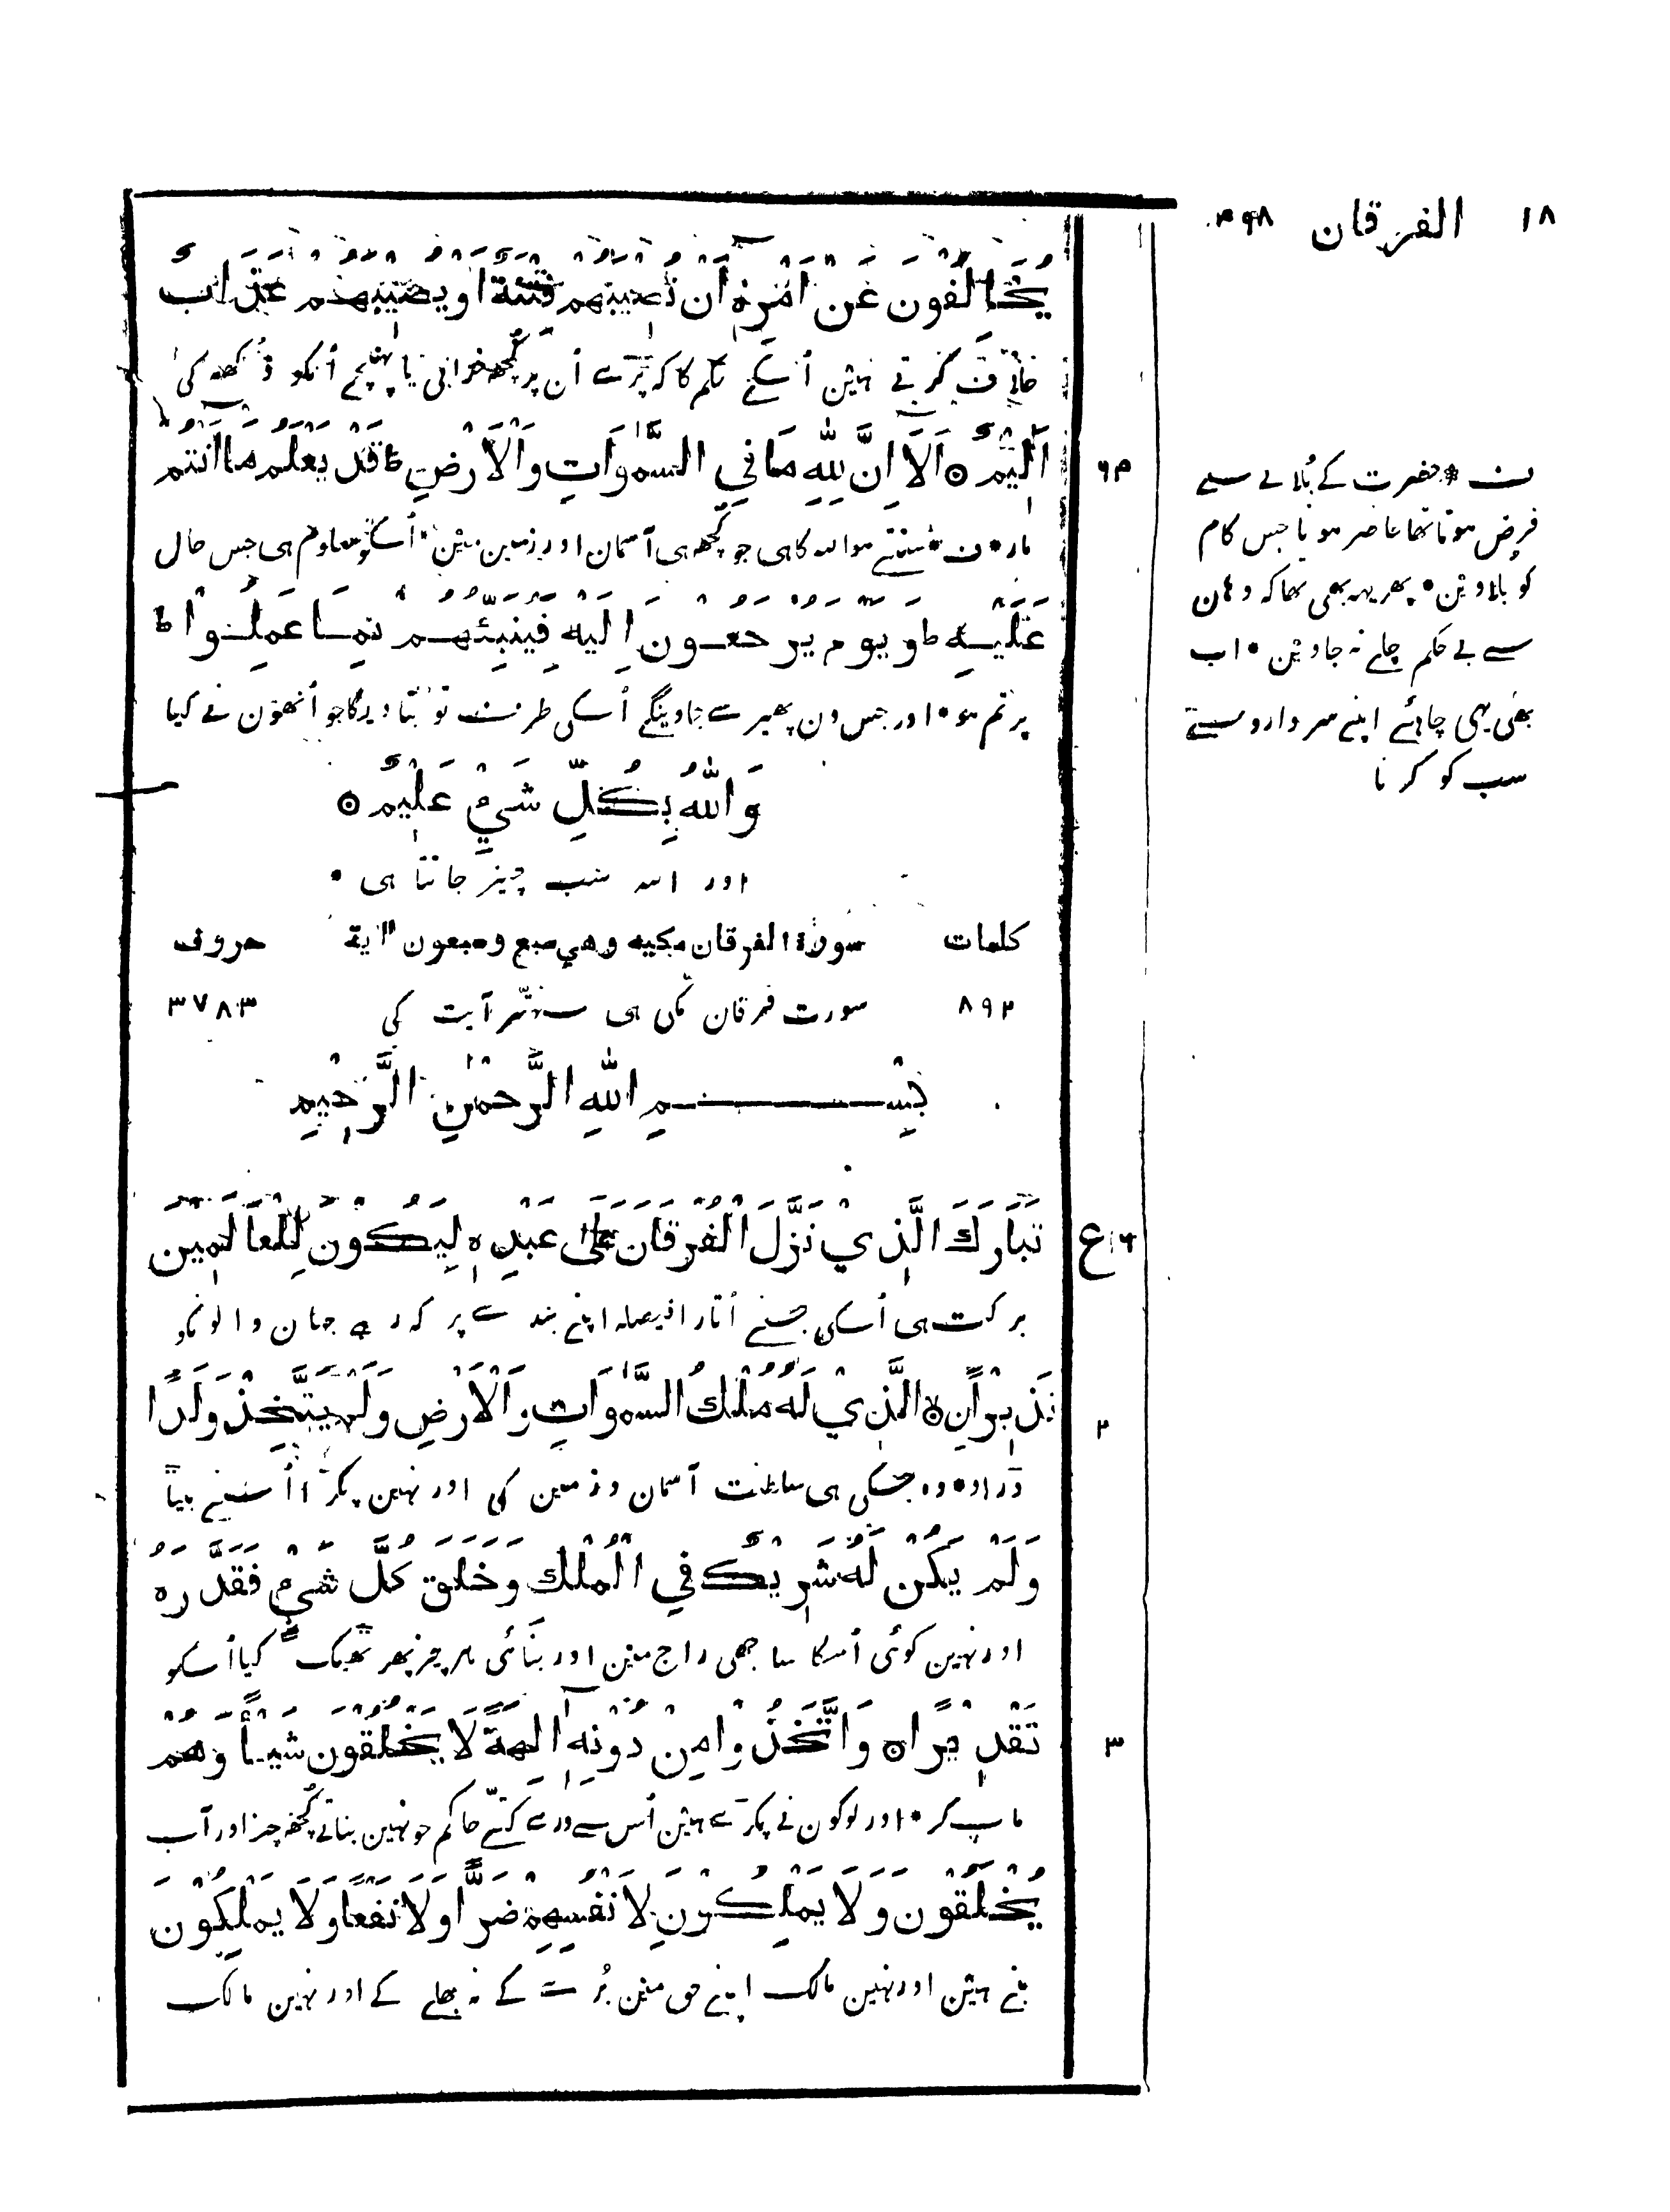 ١٨ الفرقان ٤٩٨
يُخَالِفُونَ عَنْ أَمْرِهٖٓ أَنْ تُصِيْبَهُمْ فِتْنَةٌ أَوْ يُصِيْبَهُمْ عَذَابٌ
خلاف کرتے ہین اُسکے حکم کا کہ پڑے اُن پر کُچھ خرابی یا پہنچے اُنکو دُکھ کی
٦٣
اَلِيْمٌ ۝ اَلَآ اِنَّ لِلّٰهِ مَا فِي السَّمٰوَاتِ وَالْاَرْضِ ط قَدْ يَعْلَمُ مَا اَنْتُمْ
مار • ف • سنتے ہو اللہ کا ہی جو کُچھ ہی آسمان اور زمین مین • اُسکو معلوم ہی جس حال
عَلَيْهِ ط وَيَوْمَ يُرْجَعُوْنَ اِلَيْهِ فَيُنَبِّئُهُمْ بِمَا عَمِلُوْا ط
پر تم ہو • اور جس دن پھیرے جاوینگے اُسکی طرف تو بتا دیگا جو اُنھون نے کیا
وَاللهُ بِكُلِّ شَيْءٍ عَلِيْمٌ ۝
اور اللہ سب چیز جانتا ہی •
ف * حضرت کے بُلانے سے
فرض ہوتا تھا حاضر ہونا جس کام
کو بلاوین • پھر یہہ بھی تھا کہ وہان
سے بے حکم چلے نہ جاوین • اب
بھی یہی چاہئے اپنے سردارون سے
سب کو کرنا
كلمات سورة الفرقان مكيه وهي سبع وسبعون اية حروف
٨٩٢ سورت فرقان مکی ہی ستتر آیت کی ٣٧٨٣
بِسْمِ اللهِ الرَّحْمٰنِ الرَّحِيْمِ
ع ١٦
تَبَارَكَ الَّذِيْ نَزَّلَ الْفُرْقَانَ عَلٰى عَبْدِهٖ لِيَكُوْنَ لِلْعَالَمِيْنَ
برکت ہی اُسکی جسنے اُتارا فیصلہ اپنے بندے پر کہ رہے جہان والونکو
٢
نَذِيْرًا نِ ۝ الَّذِيْ لَهٗ مُلْكُ السَّمٰوَاتِ وَالْاَرْضِ وَلَمْ يَتَّخِذْ وَلَدًا
ڈراو • وہ جسکی ہی سلطنت آسمان و زمین کی اور نہین پکڑا اُسنے بیٹا
وَلَمْ يَكُنْ لَهٗ شَرِيْكٌ فِي الْمُلْكِ وَخَلَقَ كُلَّ شَيْءٍ فَقَدَّرَهٗ
اور نہین کوئی اُسکا ساجھی راج مین اور بنائی ہر چیز پھر ٹھیک کیا اُسکو
٣
تَقْدِيْرًا ۝ وَاتَّخَذُوْا مِنْ دُوْنِهٖٓ اٰلِهَةً لَا يَخْلُقُوْنَ شَيْئًا وَهُمْ
ماپ کر • اور لوگون نے پکڑے ہین اُس سے ورے کتے حاکم جو نہین بناتے کُچھ چیز اور آپ
يُخْلَقُوْنَ وَلَا يَمْلِكُوْنَ لِاَنْفُسِهِمْ ضَرًّا وَلَا نَفْعًا وَلَا يَمْلِكُوْنَ
بنے ہین اور نہین مالک اپنے حق مین بُرے کے نہ بھلے کے اور نہین مالک